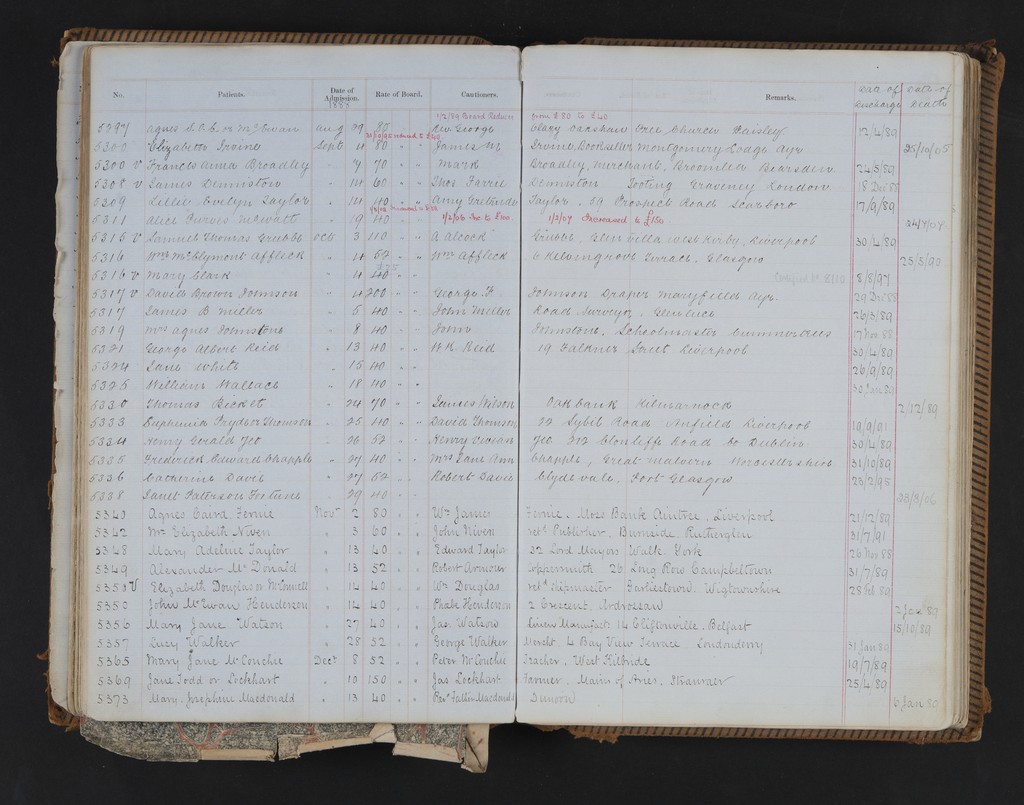 No. Patients. Date of Admission. Rate of Board. Cautioners. Remarks. Date of Discharge Date of Death
1888
1/2/89 Board Reduced from £80 to £40
5297 Agnes S. A. E. or McEwan Aug 29 80 Rev George Clazy Oakshaw Free Church Paisley 12/4/89
Elizabeth Irvine Sept 4 80 James M Irvine, Bookseller Montgomery Lodge Ayr 25/10/05
5300 V Francis Anna Broadley 7 70 Mark Broadley, Merchant, Broomlea Bearsden 24/5/89
5308 V James Denniston 14 60 Thos Farrie Denniston Tooting Graveney London 18 Dec 88
5309 Lillie Evelyn Taylor 14 40 Amy Gertrude Taylor. 59 Prospect Road Scarboro 17/9/89
5311 Alice Purves 19 40 1/2/06 Inc to £100. 1/2/07 Increased to £150 24/7/07
5315 V Samuel Thomas Grubb Oct 3 110 A Alcock Grubb, Glen Villa West Kirby, Liverpool 30/4/89
5316 Wm McClymont Affleck 4 52 Wm Affleck 6 Kelvingrove Terrace, Glasgow 25/3/90
5316 V Mary Clark 4 40 8/8/97
5317 V David Brown Johnson 4 200 George F Johnson Draper Maryfield Ayr. 29 Dec 88
5317 James B Miller 5 40 John Miller Road Surveyor, Glenluce 26/3/89
5319 Mrs Agnes Johnstone 8 40 John Johnstone, Schoolmaster Cummertrees 17 Nov 88
5321 George Albert Reid 13 40 W. R. Reid 19 Falkner Street Liverpool 30/4/89
5324 Jane White 15 40 26/9/89
5325 William Wallace 18 40 30 Jan 89
5330 Thomas Bicket 24 70 James Wilson Oakbank Kilmarnock 2/12/89
5333 Euphemia Fryde or Thomson 25 40 David Thomson 22 Sybil Road Anfield Liverpool 19/9/91
5334 Henry Gerald Yeo 26 52 Henry Vivian Yeo 212 Clonliffe Road Co Dublin 30/4/89
5335 Frederick Edward Chapple 27 40 Mrs Jane Ann Chapple, Great Malvern Worcestershire 31/10/89
5336 Catherine Davie 27 52 Robert Davie Clydevale, Port Glasgow 23/2/95
5338 Janet Patterson Fortune 29 40 23/3/06
5340 Agnes Caird Fernie Nov 2 80 Wm James Fernie. Moss Bank Aintree. Liverpool 21/12/89
5342 Mrs Elizabeth Niven 3 60 John Niven retd Publisher. Burnside. Rutherglen 31/7/91
5348 Mary Adeline Taylor 13 40 Edward Taylor 32 Lord Mayors Walk. York 26 Nov 88
5349 Alexander McDonald 13 52 Robert Armour Coppersmith 26 Long Row Campbeltown 31/7/89
5350 V Elizabeth Douglas or McConnell 14 40 Wm Douglas retd Shipmaster Garliestown. Wigtownshire 28 Feb 89
5350 John McEwan Henderson 14 40 Phoebe Henderson 2 Crescent. Ardrossan 2 Jan 89
5356 Mary Jane Watson 27 40 Jas. Watson Linen Manufact. 14 Cliftonville. Belfast 15/10/89
5357 Lucy Walker 28 52 George Walker Mercht. 4 Bay View Terrace Londonderry 31 Jan 89
5365 Mary Jane McConchie Dec 8 52 Peter McConchie Teacher. West Kilbride 19/7/89
5369 Jane Todd or Lockhart 10 150 Jas Lockhart Farmer. Mains of Aries. Stranraer 25/4/89
5373 Mary Josephine Macdonald 13 40 Macdonald Dunoon 6 Jan 89